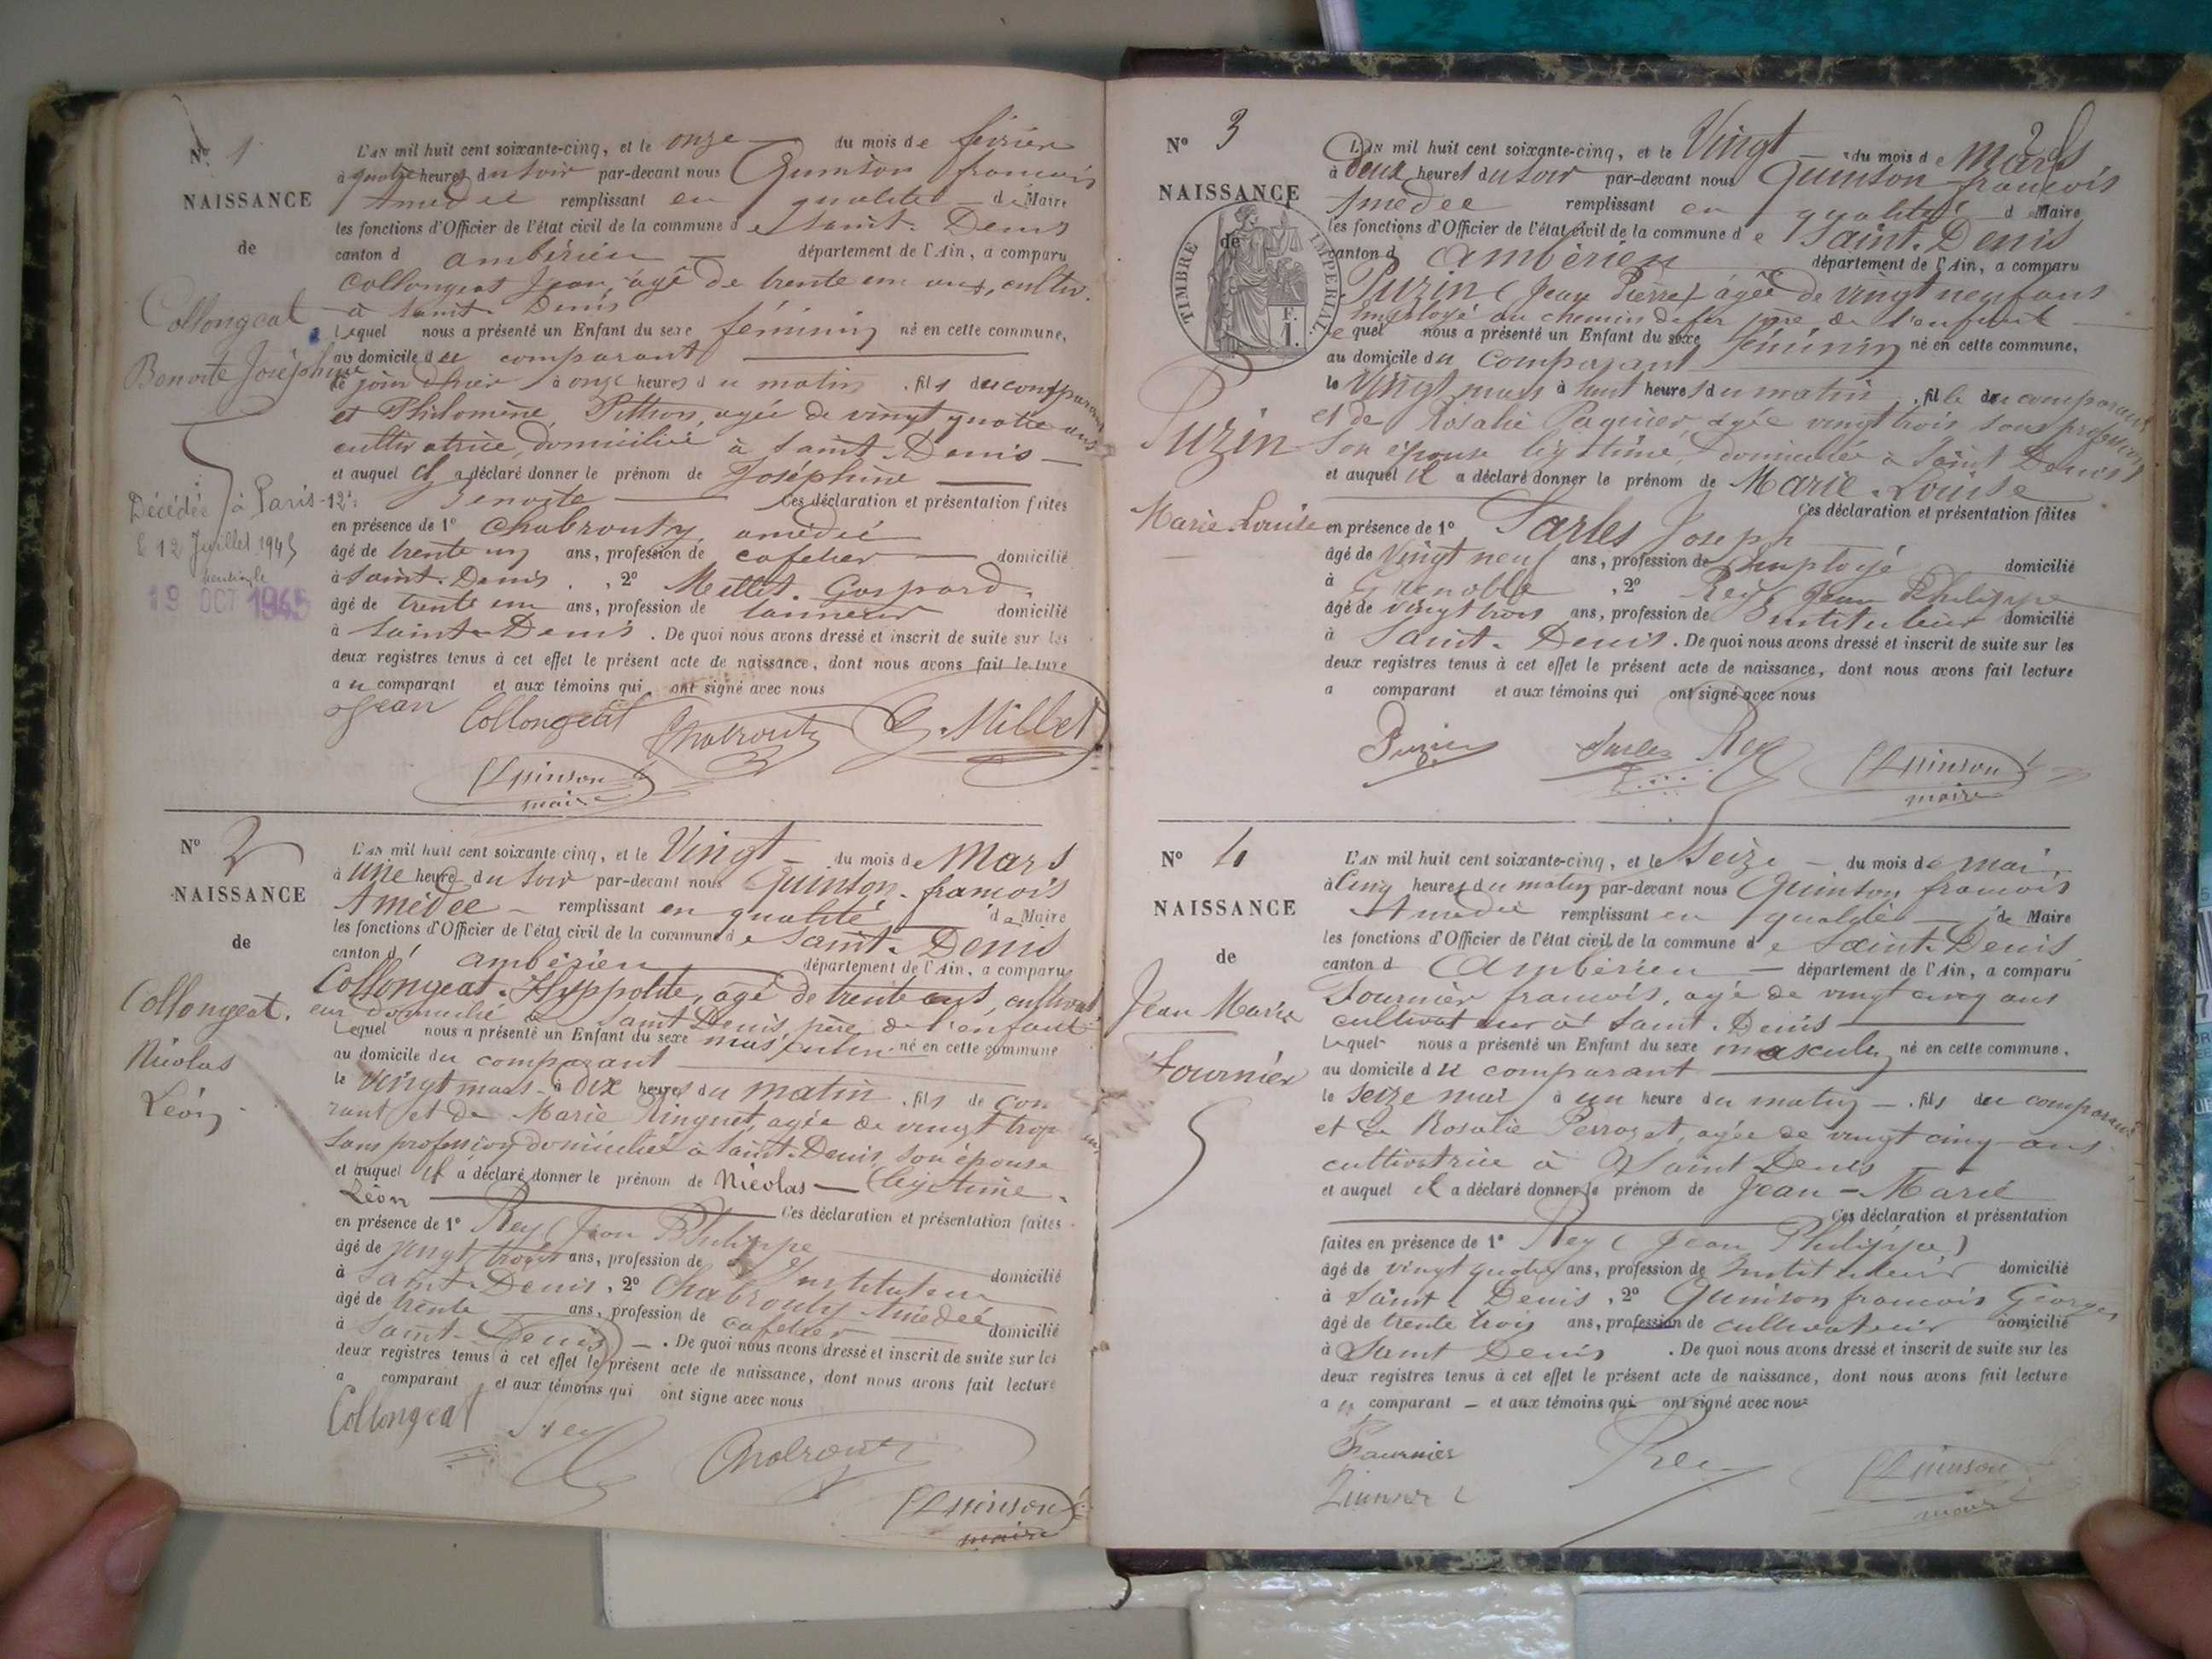 N° 1
NAISSANCE
de
Collongeat
Benoite Joséphine
Décédée à Paris-12e
le 12 Juillet 1945
19 OCT 1945
L'AN mil huit cent soixante-cinq, et le onze du mois de février
à quatre heures du soir par-devant nous Quinson françois
Amédée remplissant en qualité de Maire
les fonctions d'Officier de l'état civil de la commune de Saint-Denis
canton d ambérieu département de l'Ain, a comparu
Collongeat Jean, âgé de trente un ans, cultiv.
à Saint Denis
Lequel nous a présenté un Enfant du sexe féminin né en cette commune,
au domicile du comparant
le jour d'hier à onze heures du matin, fils du comparant
et Philomène Pithon, agée de vingt quatre ans
cultivatrice, domiciliée à Saint Denis
et auquel il a déclaré donner le prénom de Joséphine
Benoite Ces déclaration et présentation faites
en présence de 1° Chabrouty amédée
âgé de trente un ans, profession de cafetier domicilié
à Saint-Denis, 2° Meillet Gaspard
âgé de trente un ans, profession de tanneur domicilié
à Saint-Denis. De quoi nous avons dressé et inscrit de suite sur les
deux registres tenus à cet effet le présent acte de naissance, dont nous avons fait lecture
au comparant et aux témoins qui ont signé avec nous
Jean Collongeat Chabrouty G. Millet
Quinson
maire
N° 2
NAISSANCE
de
Collongeat.
Nicolas
Léon
L'AN mil huit cent soixante cinq, et le Vingt du mois de Mars
à une heure du soir par-devant nous Quinson françois
Amédée remplissant en qualité de Maire
les fonctions d'Officier de l'état civil de la commune de Saint-Denis
canton d ambérieu département de l'Ain, a comparu
Collongeat Hyppolite, agé de trente ans, cultivat
eur domicilié à Saint Denis, père de l'enfant
Lequel nous a présenté un Enfant du sexe masculin né en cette commune
au domicile du comparant
le vingt mars à dix heures du matin, fils de com
rant et de Marie Ringuet, agée de vingt trois ans
sans profession domiciliée à Saint-Denis, son épouse
et auquel il a déclaré donner le prénom de Nicolas légitime.
Léon Ces déclaration et présentation faites
en présence de 1° Rey (Jean Philippe
âgé de vingt trois ans, profession de Instituteur domicilié
à Saint-Denis, 2° Chabrouty Amédée
âgé de trente ans, profession de cafetier domicilié
à Saint-Denis. De quoi nous avons dressé et inscrit de suite sur les
deux registres tenus à cet effet le présent acte de naissance, dont nous avons fait lecture
a comparant et aux témoins qui ont signé avec nous
Collongeat Rey Chabrouty
Quinson
maire
N° 3
NAISSANCE
de
TIMBRE IMPERIAL
F.
1.
Puzin
Marie Louise
L'AN mil huit cent soixante-cinq, et le Vingt du mois de Mars
à deux heures du soir par-devant nous Quinson françois
Amédée remplissant en qualité de Maire
les fonctions d'Officier de l'état civil de la commune de Saint-Denis
canton d Ambérieu département de l'Ain, a comparu
Puzin (Jean Pierre) âgée de vingt neuf ans
Employé au chemin de fer père de l'enfant
Lequel nous a présenté un Enfant du sexe féminin né en cette commune,
au domicile du comparant
le Vingt mars à huit heures du matin, fille du comparant
et de Rosalie Paquier, agée vingt trois sans profession
son épouse légitime, domiciliée à Saint Denis
et auquel il a déclaré donner le prénom de Marie-Louise
Ces déclaration et présentation faites
en présence de 1° Sarles Joseph
âgé de vingt neuf ans, profession de Employé domicilié
à Grenoble, 2° Rey (Jean Philippe
âgé de vingt trois ans, profession de Instituteur domicilié
à Saint-Denis. De quoi nous avons dressé et inscrit de suite sur les
deux registres tenus à cet effet le présent acte de naissance, dont nous avons fait lecture
a comparant et aux témoins qui ont signé avec nous
Puzin Sarles Rey Quinson
maire
N° 4
NAISSANCE
de
Jean Marie
Fournier
L'AN mil huit cent soixante-cinq, et le Seize du mois de mai
à Cinq heures du matin par-devant nous Quinson françois
Amédée remplissant en qualité de Maire
les fonctions d'Officier de l'état civil de la commune de Saint-Denis
canton d Ambérieu département de l'Ain, a comparu
Fournier françois, agé de vingt cinq ans
cultivateur à Saint-Denis
Lequel nous a présenté un Enfant du sexe masculin né en cette commune,
au domicile du comparant
le seize mai à un heure du matin, fils du comparant
et de Rosalie Perrozet, agée de vingt cinq ans
cultivatrice à Saint Denis
et auquel il a déclaré donner le prénom de Jean-Marie
Ces déclaration et présentation
faites en présence de 1° Rey (Jean Philippe)
âgé de vingt quatre ans, profession de Instituteur domicilié
à Saint Denis, 2° Quinson françois Georges
âgé de trente trois ans, profession de cultivateur domicilié
à Saint Denis. De quoi nous avons dressé et inscrit de suite sur les
deux registres tenus à cet effet le présent acte de naissance, dont nous avons fait lecture
au comparant et aux témoins qui ont signé avec nous
Fournier Rey Quinson
maire